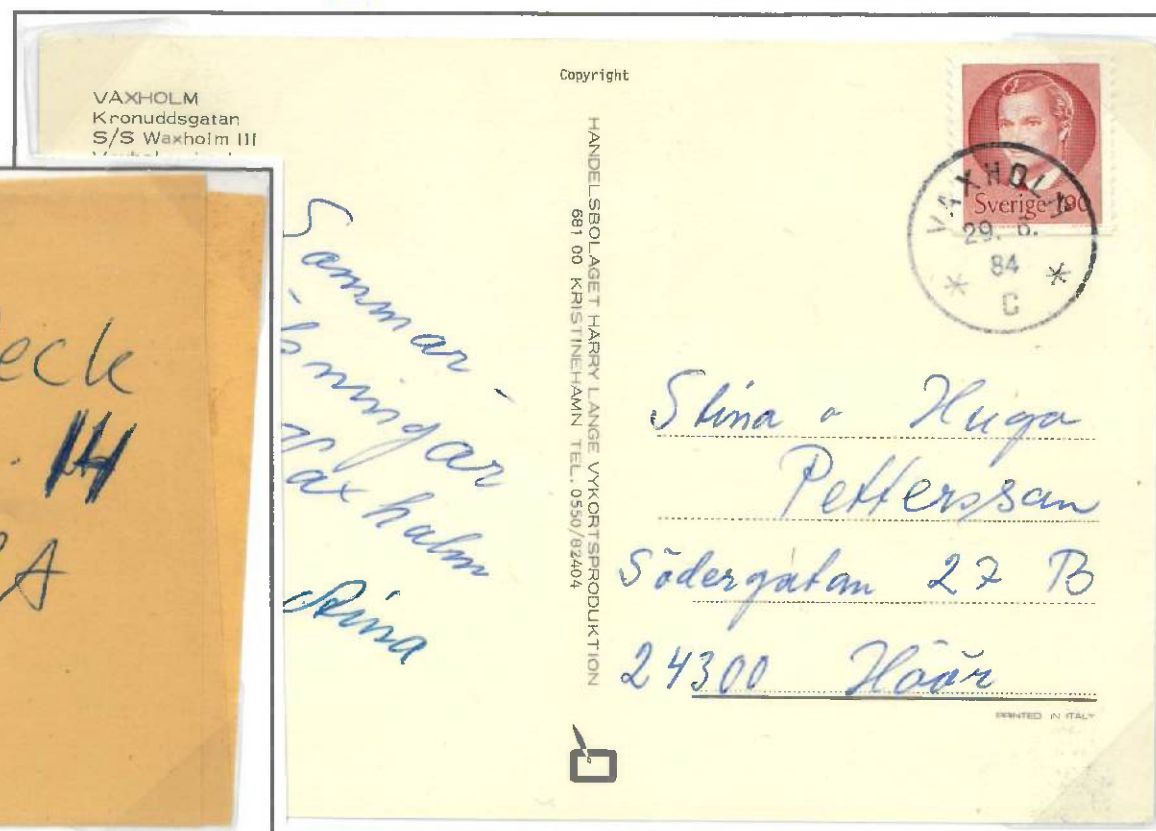 VAXHOLM
Kronuddsgatan
S/S Waxholm III
Copyright
HANDELSBOLAGET HARRY LANGE VYKORTSPRODUKTION
681 00 KRISTINEHAMN TEL. 0550/82404
Sverige 190
VAXHOLM
29. 6.
84
* C *
Sommar -
Vaxholm
Stina o Hugo
Pettersson
Södergatan 27 B
24300 Höör
PRINTED IN ITALY
eck
14
A